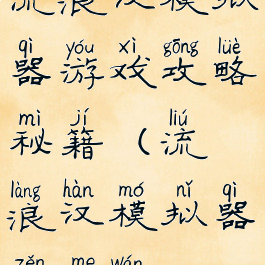 流浪汉模拟
qì yóu xì gōng lüè
器游戏攻略
mì jí liú
秘籍（流
làng hàn mó nǐ qì
浪汉模拟器
zěn me wán